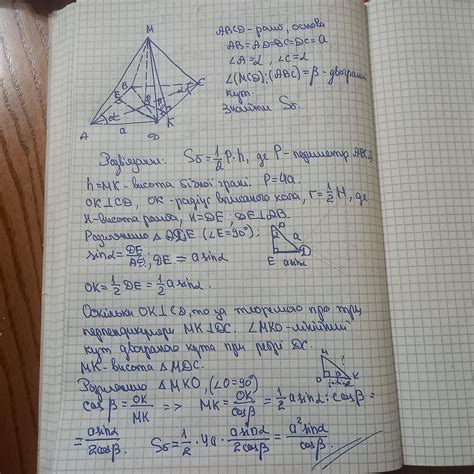 ABCD-ромб, основа
AB=AD=BC=DC=a
∠A=α, ∠C=α
∠(MCD);(ABC)=β-двогранний
кут.
Знайти Sб.
M
B
C
E
O
A
a
D
K
α
Розв'язання: Sб=1/2 P·h, де P-периметр ABCD
h=MK-висота бічної грані. P=4a.
OK⊥CD, OK-радіус вписаного кола, r=1/2 H, де
H-висота ромба, H=DE, DE⊥AB.
Розглянемо △ADE (∠E=90°):
sinα=DE/AD, DE=a sinα
A
a
E
D
a sinα
OK=1/2 DE=1/2 a sinα.
Оскільки OK⊥CD, то за теоремою про три
перпендикуляри MK⊥DC. ∠MKO-лінійний
кут двогранного кута при ребрі DC.
MK-висота △MDC.
Розглянемо △MKO, (∠O=90°)
M
O
K
cosβ=OK/MK => MK=OK/cosβ=1/2 a sinα:cosβ=
=a sinα/2cosβ. Sб=1/2·4a·a sinα/2cosβ=a² sinα/cosβ.